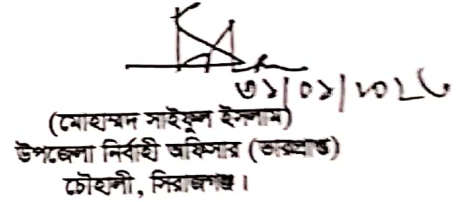 (মোহাম্মদ সাইফুল ইসলাম)
উপজেলা নির্বাহী অফিসার (ভারপ্রাপ্ত)
চৌহালী, সিরাজগঞ্জ।